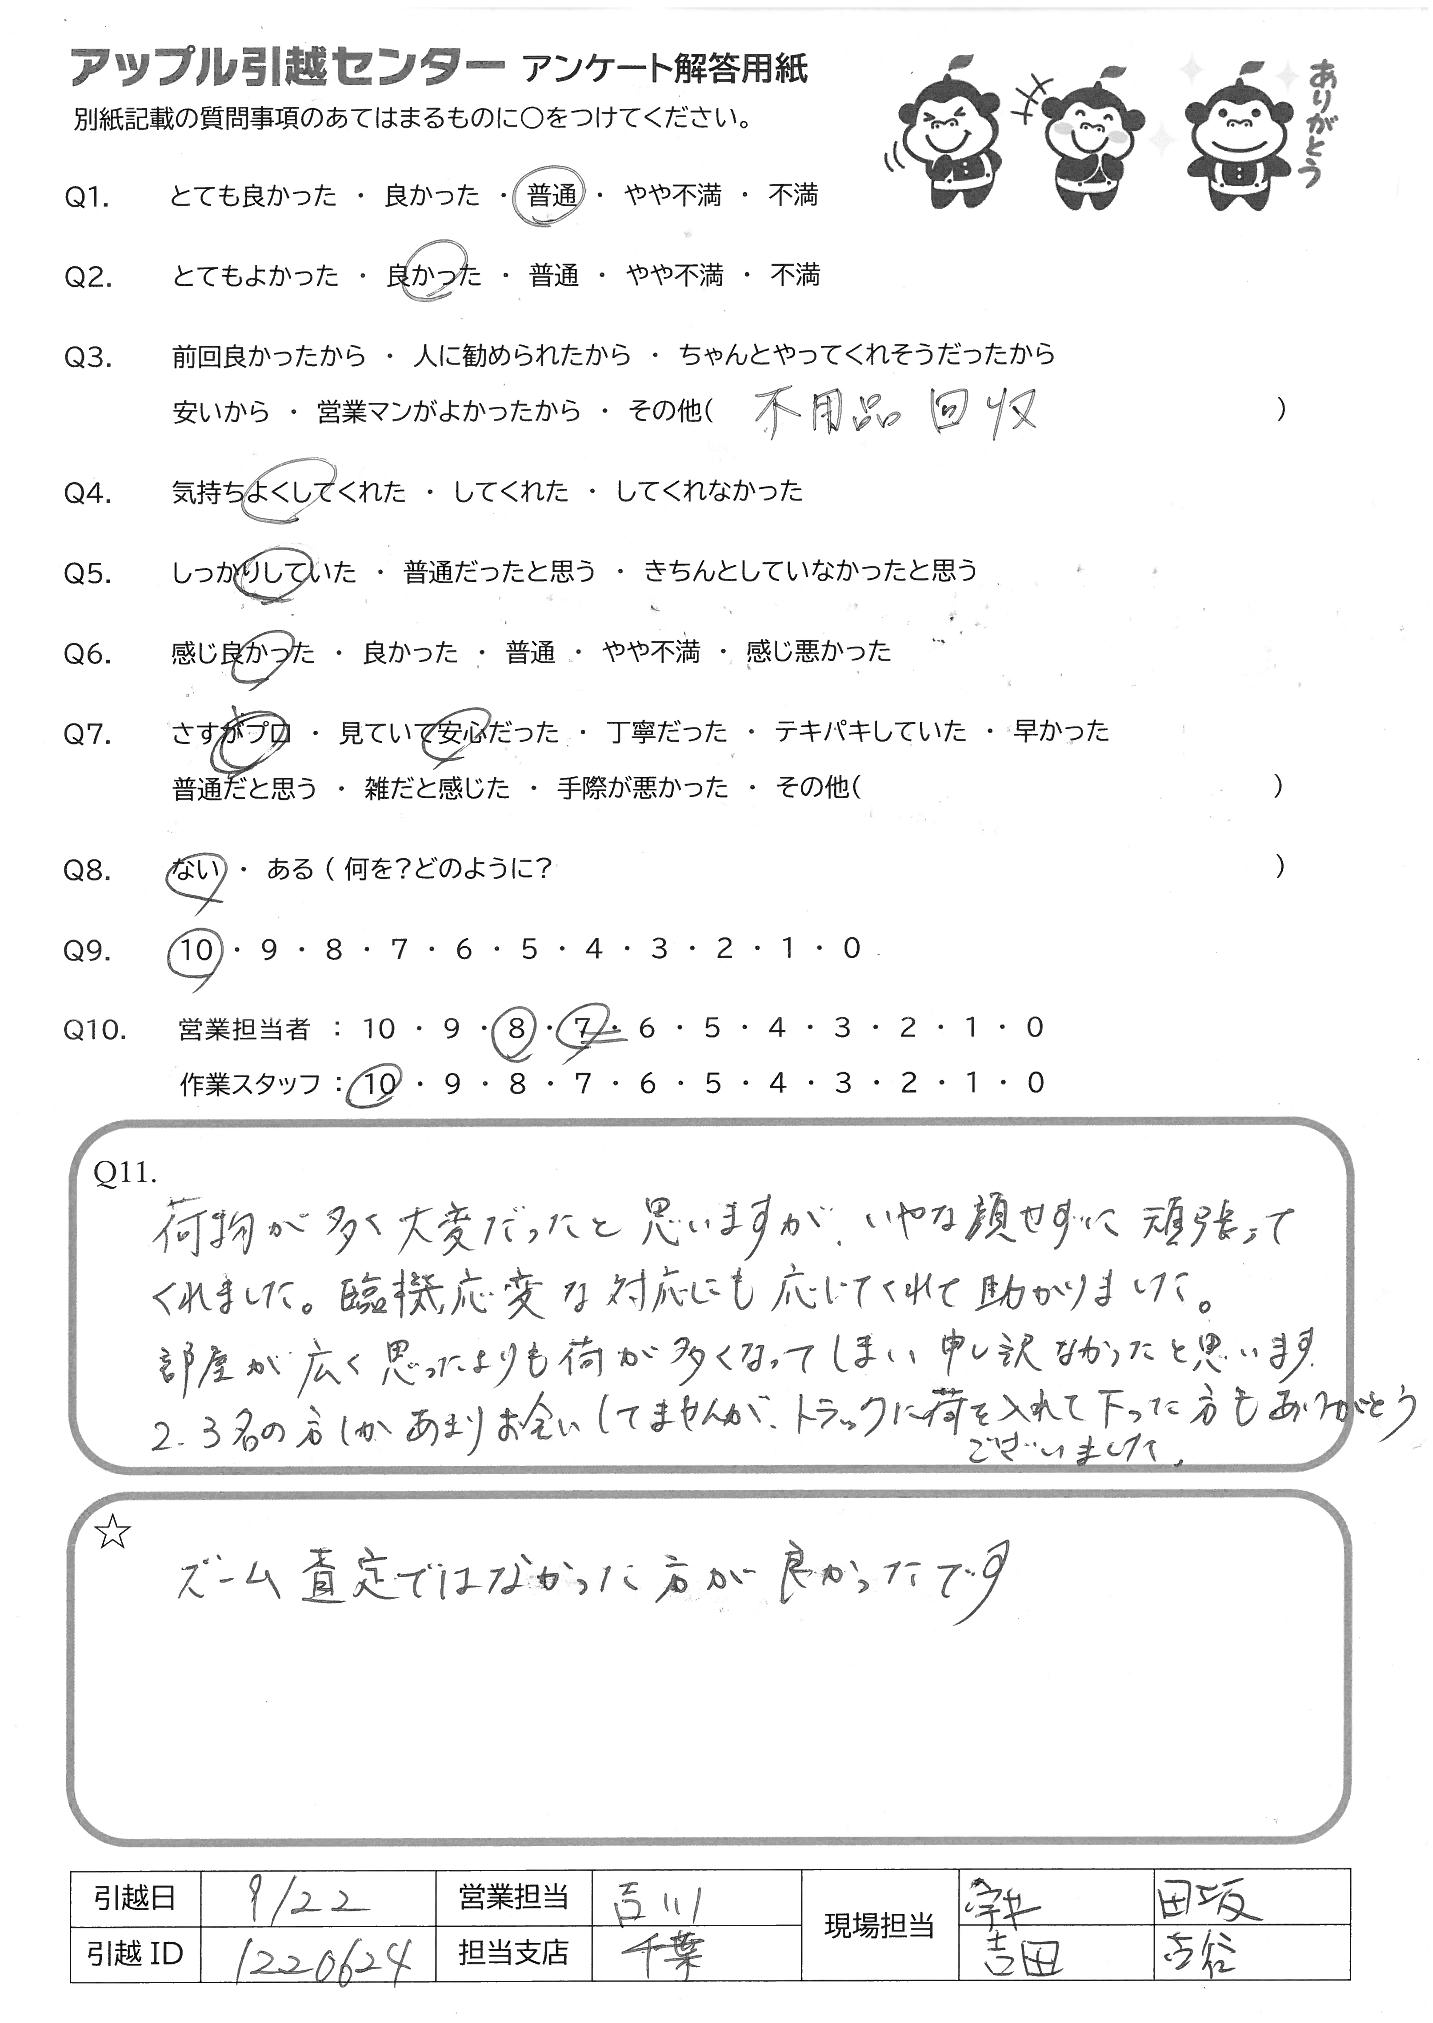 アップル引越センター アンケート解答用紙
ありがとう
別紙記載の質問事項のあてはまるものに○をつけてください。
Q1. とても良かった ・ 良かった ・ 普通 ・ やや不満 ・ 不満
Q2. とてもよかった ・ 良かった ・ 普通 ・ やや不満 ・ 不満
Q3. 前回良かったから ・ 人に勧められたから ・ ちゃんとやってくれそうだったから
安いから ・ 営業マンがよかったから ・ その他( 不用品回収 )
Q4. 気持ちよくしてくれた ・ してくれた ・ してくれなかった
Q5. しっかりしていた ・ 普通だったと思う ・ きちんとしていなかったと思う
Q6. 感じ良かった ・ 良かった ・ 普通 ・ やや不満 ・ 感じ悪かった
Q7. さすがプロ ・ 見ていて安心だった ・ 丁寧だった ・ テキパキしていた ・ 早かった
普通だと思う ・ 雑だと感じた ・ 手際が悪かった ・ その他( )
Q8. ない ・ ある ( 何を?どのように? )
Q9. 10 ・ 9 ・ 8 ・ 7 ・ 6 ・ 5 ・ 4 ・ 3 ・ 2 ・ 1 ・ 0
Q10. 営業担当者 : 10 ・ 9 ・ 8 ・ 7 ・ 6 ・ 5 ・ 4 ・ 3 ・ 2 ・ 1 ・ 0
作業スタッフ : 10 ・ 9 ・ 8 ・ 7 ・ 6 ・ 5 ・ 4 ・ 3 ・ 2 ・ 1 ・ 0
Q11.
荷物が多く大変だったと思いますが、いやな顔せずに頑張って
くれました。臨機応変な対応にも応じてくれて助かりました。
部屋が広く思ったよりも荷が多くなってしまい申し訳なかったと思います.
2.3名の方しかあまりお会いしてませんが、トラックに荷を入れて下った方もありがとう
ございました.
☆
ズーム査定ではなかった方が良かったです
引越日 9/22 営業担当 吉川 現場担当 田坂
引越 ID 1220624 担当支店 千葉 吉田 古谷